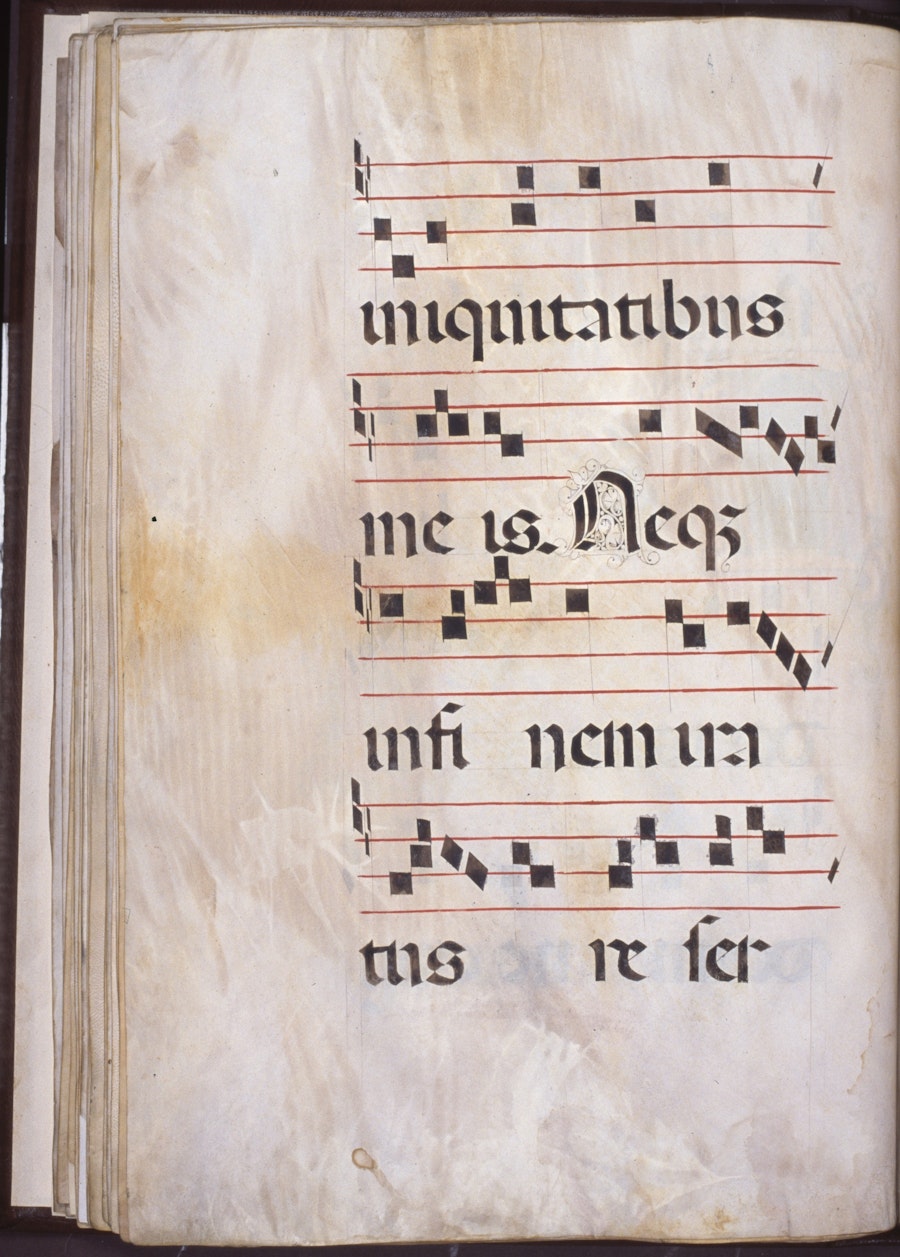 iniquitatibus
me is. Neqꝫ
infi nem ira
tus re ser